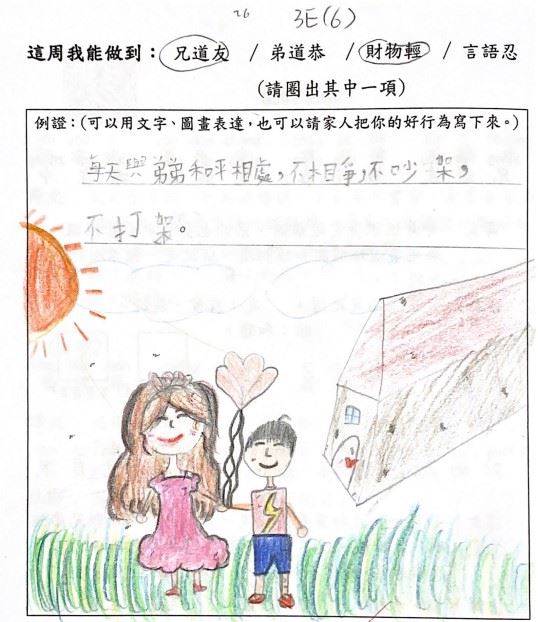 26 3E(6)
這周我能做到：兄道友 / 弟道恭 / 財物輕 / 言語忍
(請圈出其中一項)
例證：(可以用文字、圖畫表達，也可以請家人把你的好行為寫下來。)
每天與弟弟和平相處，不相爭，不吵架，
不打架。